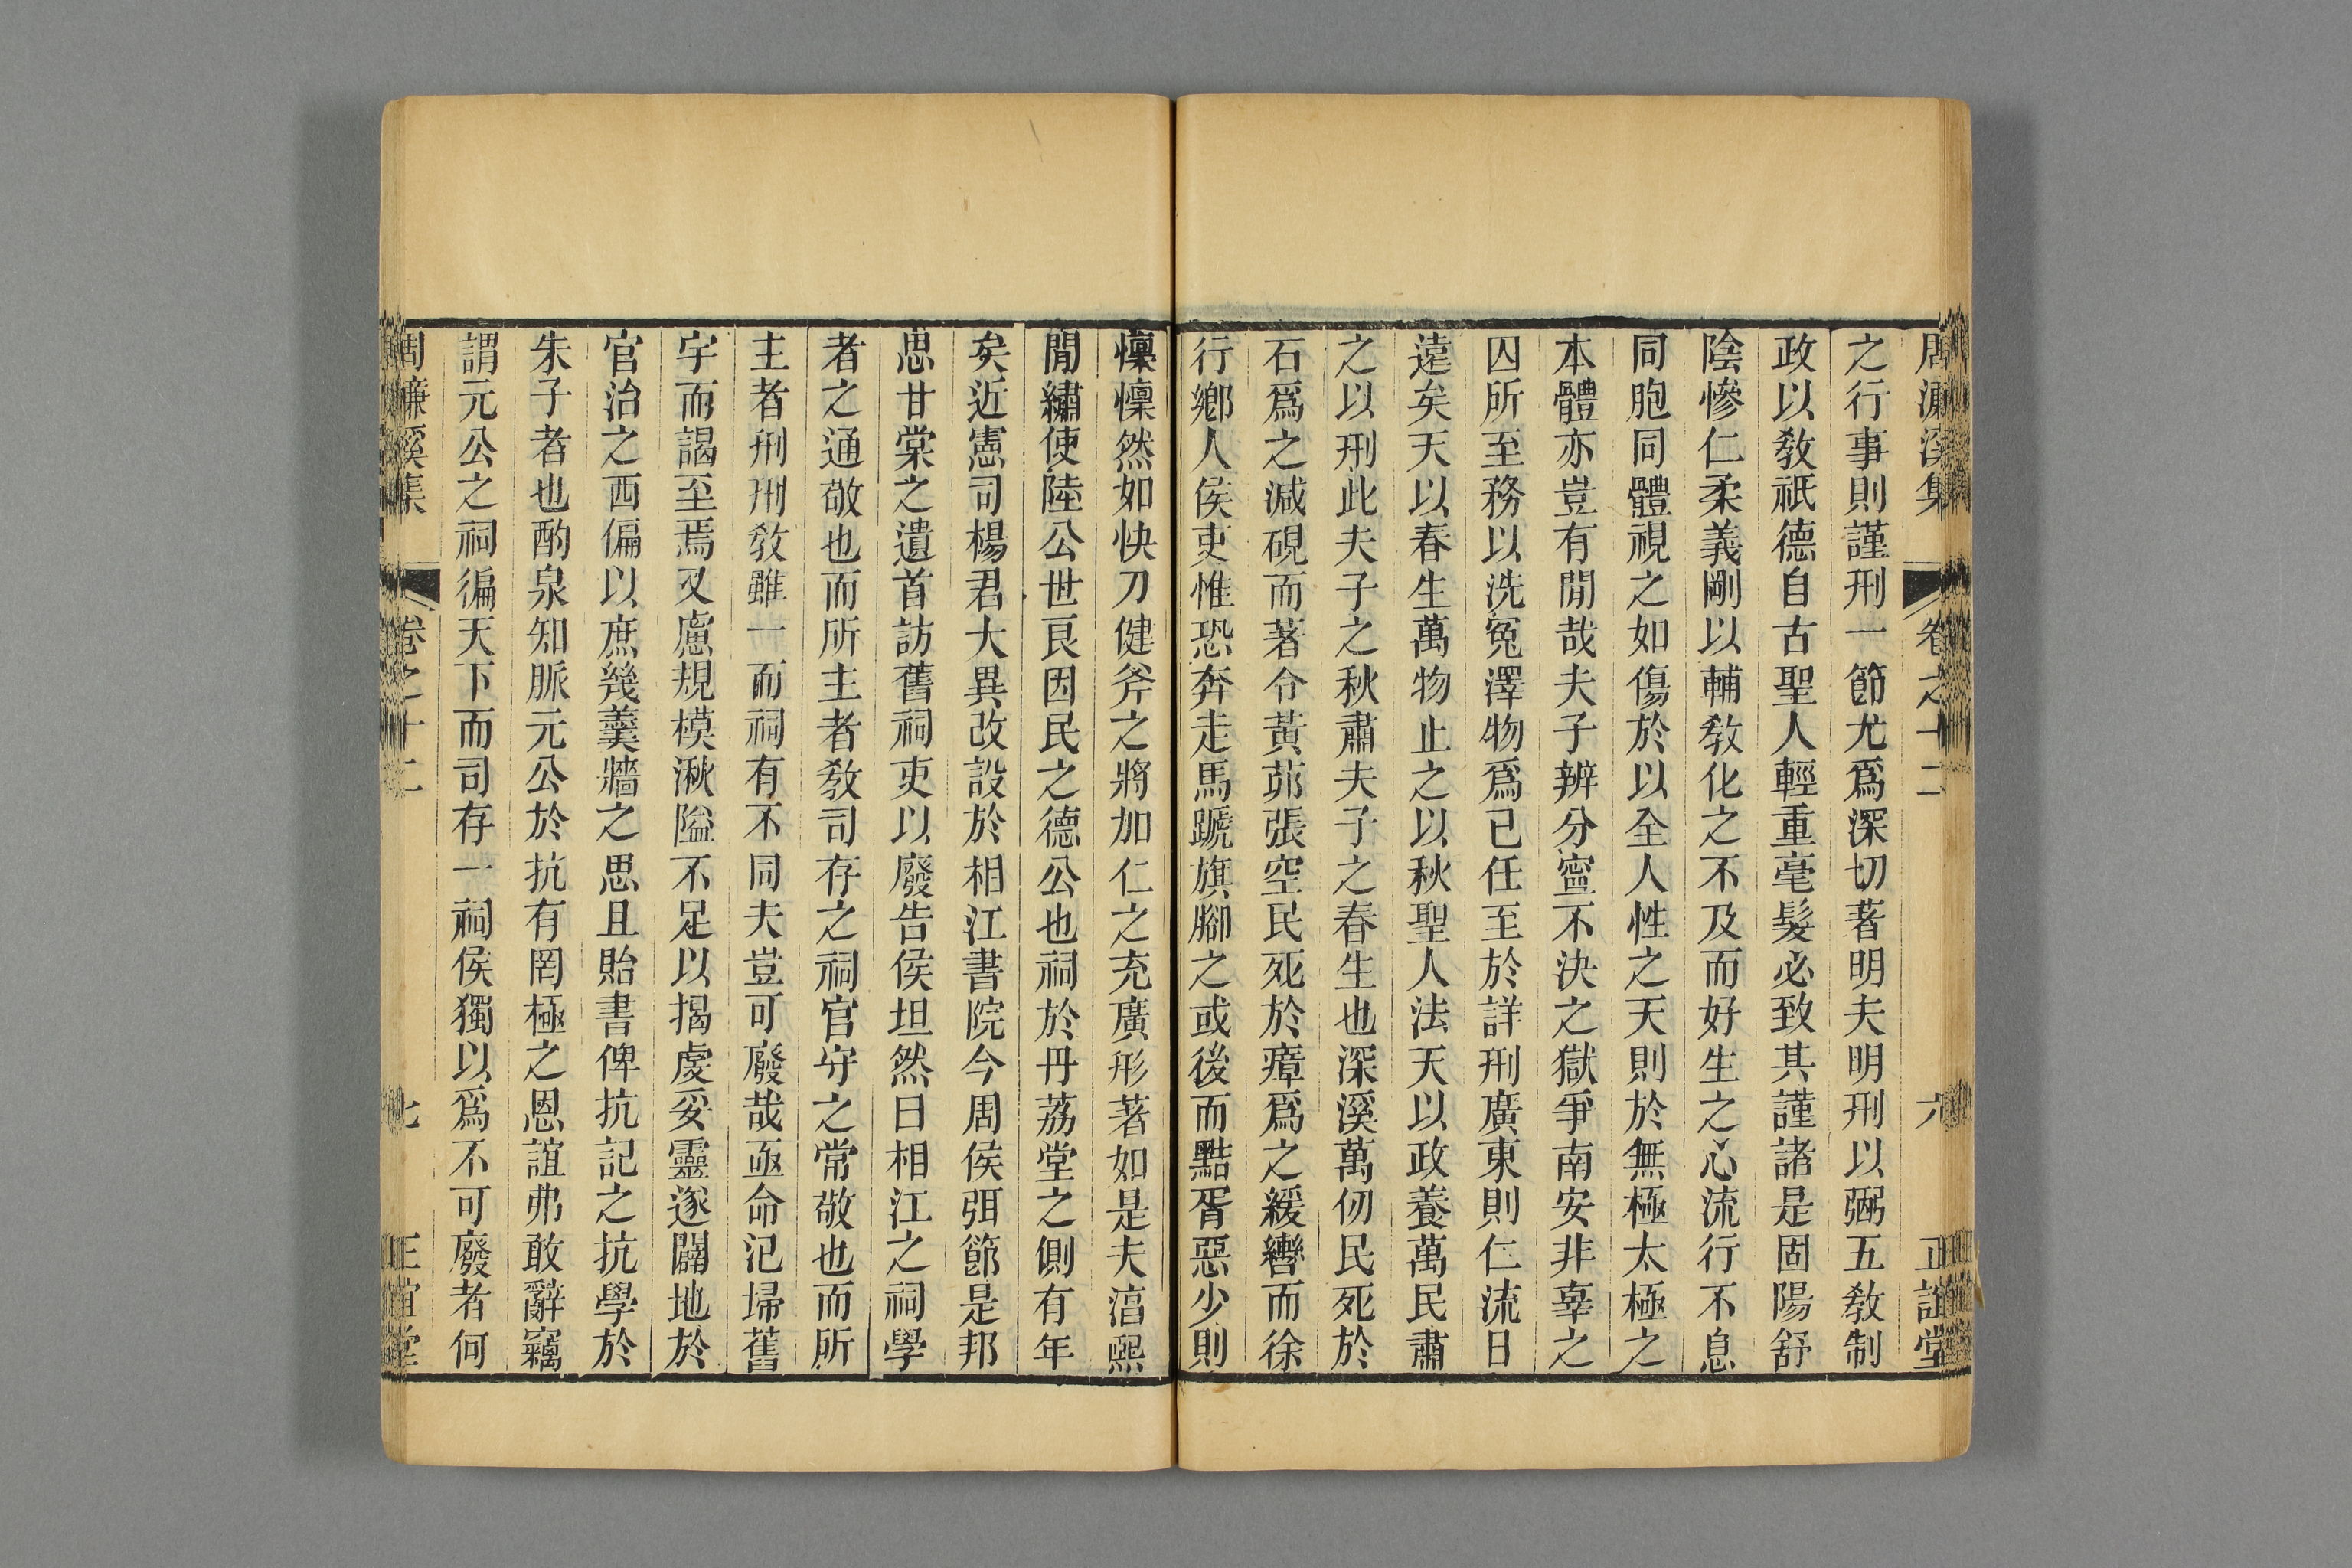 周濂溪集 卷之十二 六 正誼堂
之行事則謹刑一節尤爲深切著明夫明刑以弼五敎制
政以敎祇德自古聖人輕重毫髮必致其謹諸是固陽舒
陰慘仁柔義剛以輔敎化之不及而好生之心流行不息
同胞同體視之如傷於以全人性之天則於無極太極之
本體亦豈有閒哉夫子辨分寧不決之獄爭南安非辜之
囚所至務以洗寃澤物爲已任至於詳刑廣東則仁流日
遠矣天以春生萬物止之以秋聖人法天以政養萬民肅
之以刑此夫子之秋肅夫子之春生也深溪萬仞民死於
石爲之減硯而著令黃茆張空民死於瘴爲之緩轡而徐
行鄉人侯吏惟恐奔走馬蹏旗腳之或後而點胥惡少則
懍懍然如快刀健斧之將加仁之充廣形著如是夫湻熙
閒繡使陸公世良因民之德公也祠於丹荔堂之側有年
矣近憲司楊君大異改設於相江書院今周侯弭節是邦
思甘棠之遺首訪舊祠吏以廢告侯坦然曰相江之祠學
者之通敬也而所主者敎司存之祠官守之常敬也而所
主者刑刑敎雖一而祠有不同夫豈可廢哉亟命汜埽舊
宇而謁至焉又慮規模湫隘不足以揭虔妥靈遂闢地於
官治之西偏以庶幾羹牆之思且貽書俾抗記之抗學於
朱子者也酌泉知脈元公於抗有罔極之恩誼弗敢辭竊
謂元公之祠徧天下而司存一祠侯獨以爲不可廢者何
周濂溪集 卷之十二 七 正誼堂